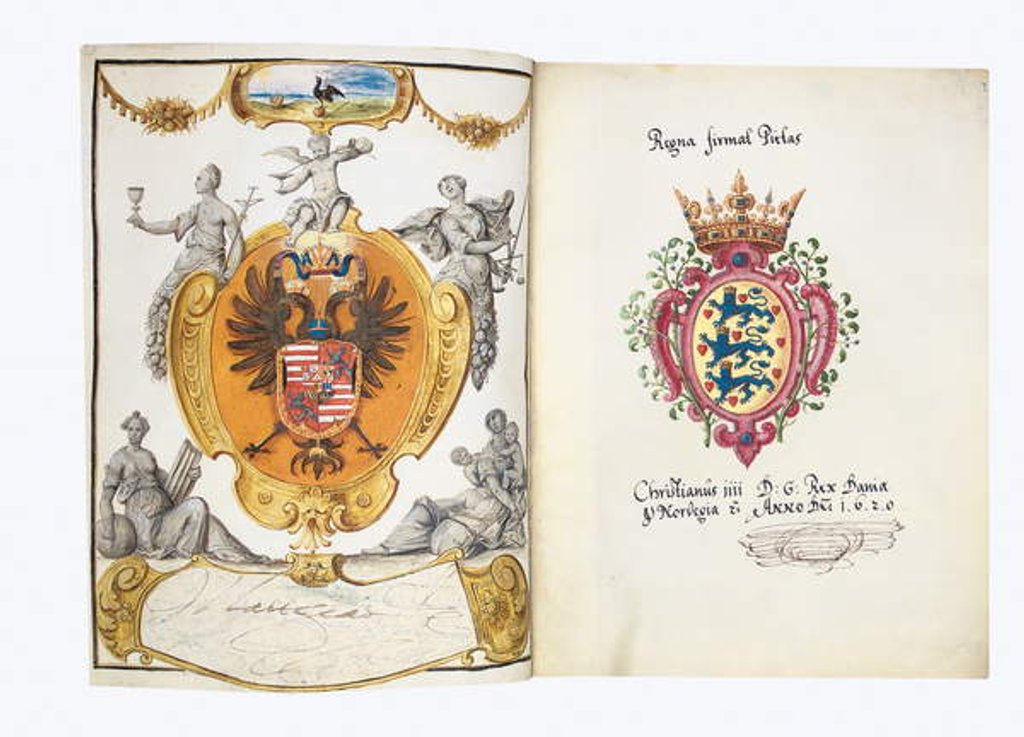 Regna firmat Pietas
Christianus iiii D: G: Rex Dania
& Norvegia
Anno Dni 1.6.2.0